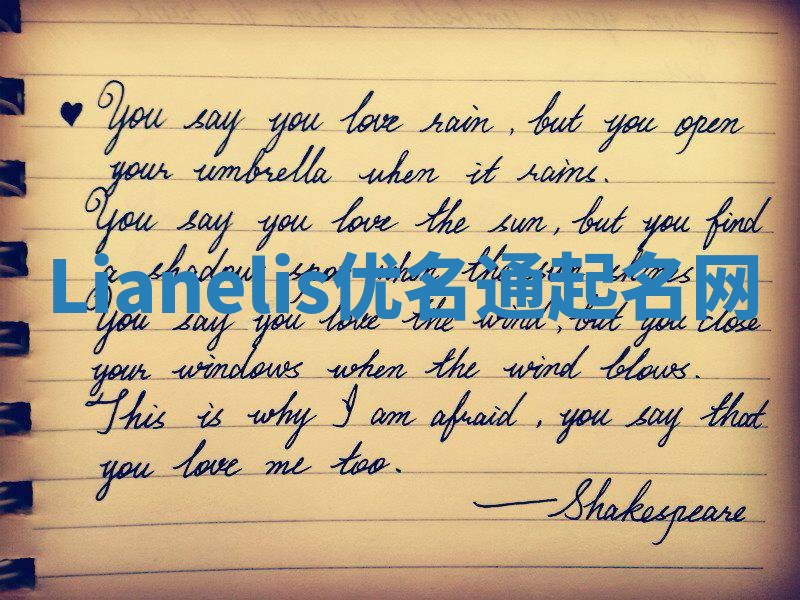 ♥ You say you love rain, but you open
your umbrella when it rains.
You say you love the sun, but you find
a shadow spot when the sun shines
Lianelis优名通起名网
You say you love the wind, but you close
your windows when the wind blows.
This is why I am afraid, you say that
you love me too.
—Shakespeare